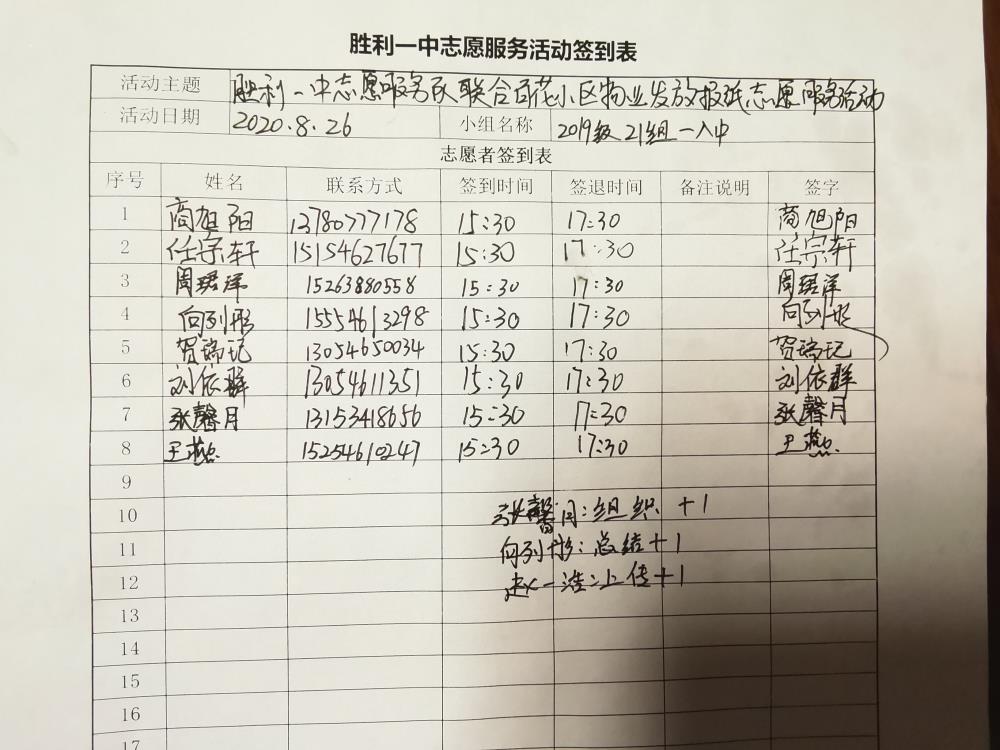 胜利一中志愿服务活动签到表
活动主题 胜利一中志愿服务队联合百花小区物业发放报纸志愿服务活动
活动日期 2020.8.26 小组名称 2019级21组一入中
志愿者签到表
序号 姓名 联系方式 签到时间 签退时间 备注说明 签字
1 商旭阳 13780777178 15:30 17:30 商旭阳
2 任宗轩 15154627677 15:30 17:30 任宗轩
3 周珺洋 15263880558 15:30 17:30 周珺洋
4 向列彤 15554613298 15:30 17:30 向列彤
5 贺瑞记 13054650034 15:30 17:30 贺瑞记
6 刘依群 13054611351 15:30 17:30 刘依群
7 张馨月 13153418656 15:30 17:30 张馨月
8 王燕 15254610247 15:30 17:30 王燕
9
10 张馨月:组织+1
11 向列彤:总结+1
12 赵一浩:上传+1
13
14
15
16
17